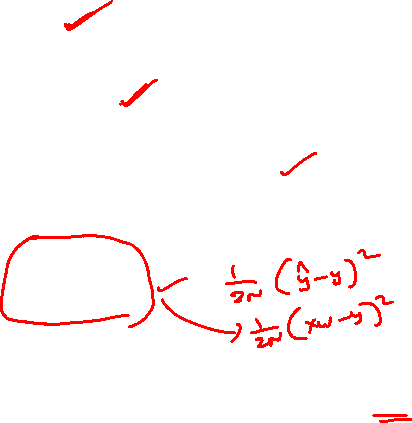 1/2N (ŷ-y)²
1/2N (xw-y)²